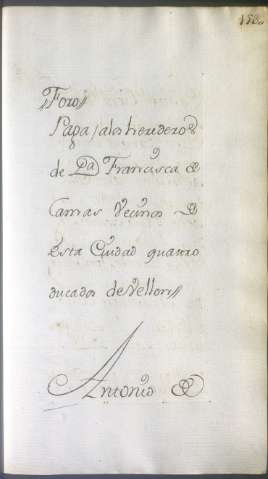 Foro
Paga / a los heredero
de Da Francisca de
Camas Vecinos de
esta Ciudad quatro
ducados de Vellon
Antonio de